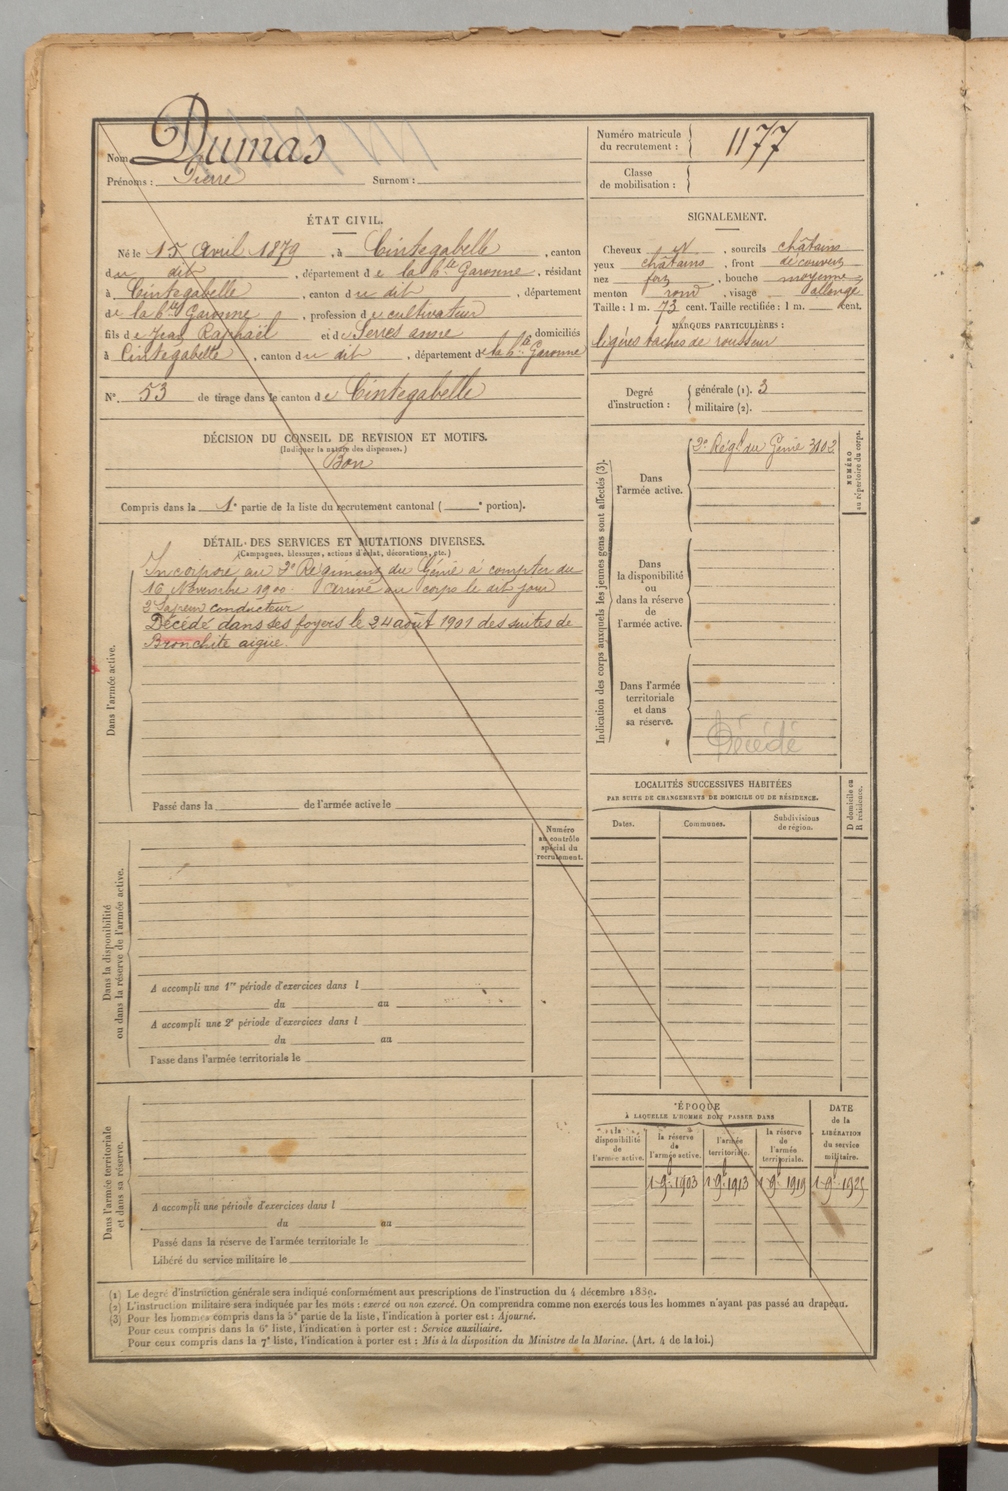 Nom Dumas
Prénoms : Pierre Surnom :
Numéro matricule du recrutement : 1177
Classe de mobilisation :
ÉTAT CIVIL.
Né le 15 Avril 1879, à Cintegabelle, canton
du dit, département de la hte Garonne, résidant
à Cintegabelle, canton du dit, département
de la hte Garonne, profession de cultivateur
fils de Jean Raphaël et de Serres anne, domiciliés
à Cintegabelle, canton du dit, département de la hte Garonne
N°. 53 de tirage dans le canton de Cintegabelle
SIGNALEMENT.
Cheveux et, sourcils châtains
yeux châtains, front découvert
nez fort, bouche moyenne
menton rond, visage allongé
Taille : 1 m. 73 cent. Taille rectifiée : 1 m. cent.
MARQUES PARTICULIÈRES :
légères taches de rousseur
Degré d'instruction : générale (1). 3
militaire (2).
DÉCISION DU CONSEIL DE REVISION ET MOTIFS.
(Indiquer la nature des dispenses.)
Bon
Compris dans la 1e partie de la liste du recrutement cantonal ( e portion).
DÉTAIL DES SERVICES ET MUTATIONS DIVERSES.
(Campagnes, blessures, actions d'éclat, décorations, etc.)
Dans l'armée active.
Incorporé au 2e Régiment du Génie à compter du
16 Novembre 1900. arrivé au corps le dit jour
2e Sapeur conducteur
Décédé dans ses foyers le 24 août 1901 des suites de
Bronchite aigue.
Passé dans la de l'armée active le
Indication des corps auxquels les jeunes gens sont affectés (3).
NUMÉRO au répertoire du corps.
Dans l'armée active.
2e Régt du Génie 3102
Dans la disponibilité ou dans la réserve de l'armée active.
Dans l'armée territoriale et dans sa réserve.
Décédé
LOCALITÉS SUCCESSIVES HABITÉES
PAR SUITE DE CHANGEMENTS DE DOMICILE OU DE RÉSIDENCE.
Dates. Communes. Subdivisions de région.
D domicile ou R résidence.
Numéro au contrôle spécial du recrutement.
Dans la disponibilité ou dans la réserve de l'armée active.
A accompli une 1re période d'exercices dans l
du au
A accompli une 2e période d'exercices dans l
du au
Passé dans l'armée territoriale le
Dans l'armée territoriale et dans sa réserve.
A accompli une période d'exercices dans l
du au
Passé dans la réserve de l'armée territoriale le
Libéré du service militaire le
ÉPOQUE
À LAQUELLE L'HOMME DOIT PASSER DANS
la disponibilité de l'armée active.
la réserve de l'armée active.
l'armée territoriale.
la réserve de l'armée territoriale.
DATE de la LIBÉRATION du service militaire.
1 9bre 1903 1 9bre 1913 1 9bre 1919 1 9bre 1925
(1) Le degré d'instruction générale sera indiqué conformément aux prescriptions de l'instruction du 4 décembre 1889.
(2) L'instruction militaire sera indiquée par les mots : exercé ou non exercé. On comprendra comme non exercés tous les hommes n'ayant pas passé au drapeau.
(3) Pour les hommes compris dans la 5e partie de la liste, l'indication à porter est : Ajourné.
Pour ceux compris dans la 6e liste, l'indication à porter est : Service auxiliaire.
Pour ceux compris dans la 7e liste, l'indication à porter est : Mis à la disposition du Ministre de la Marine. (Art. 4 de la loi.)